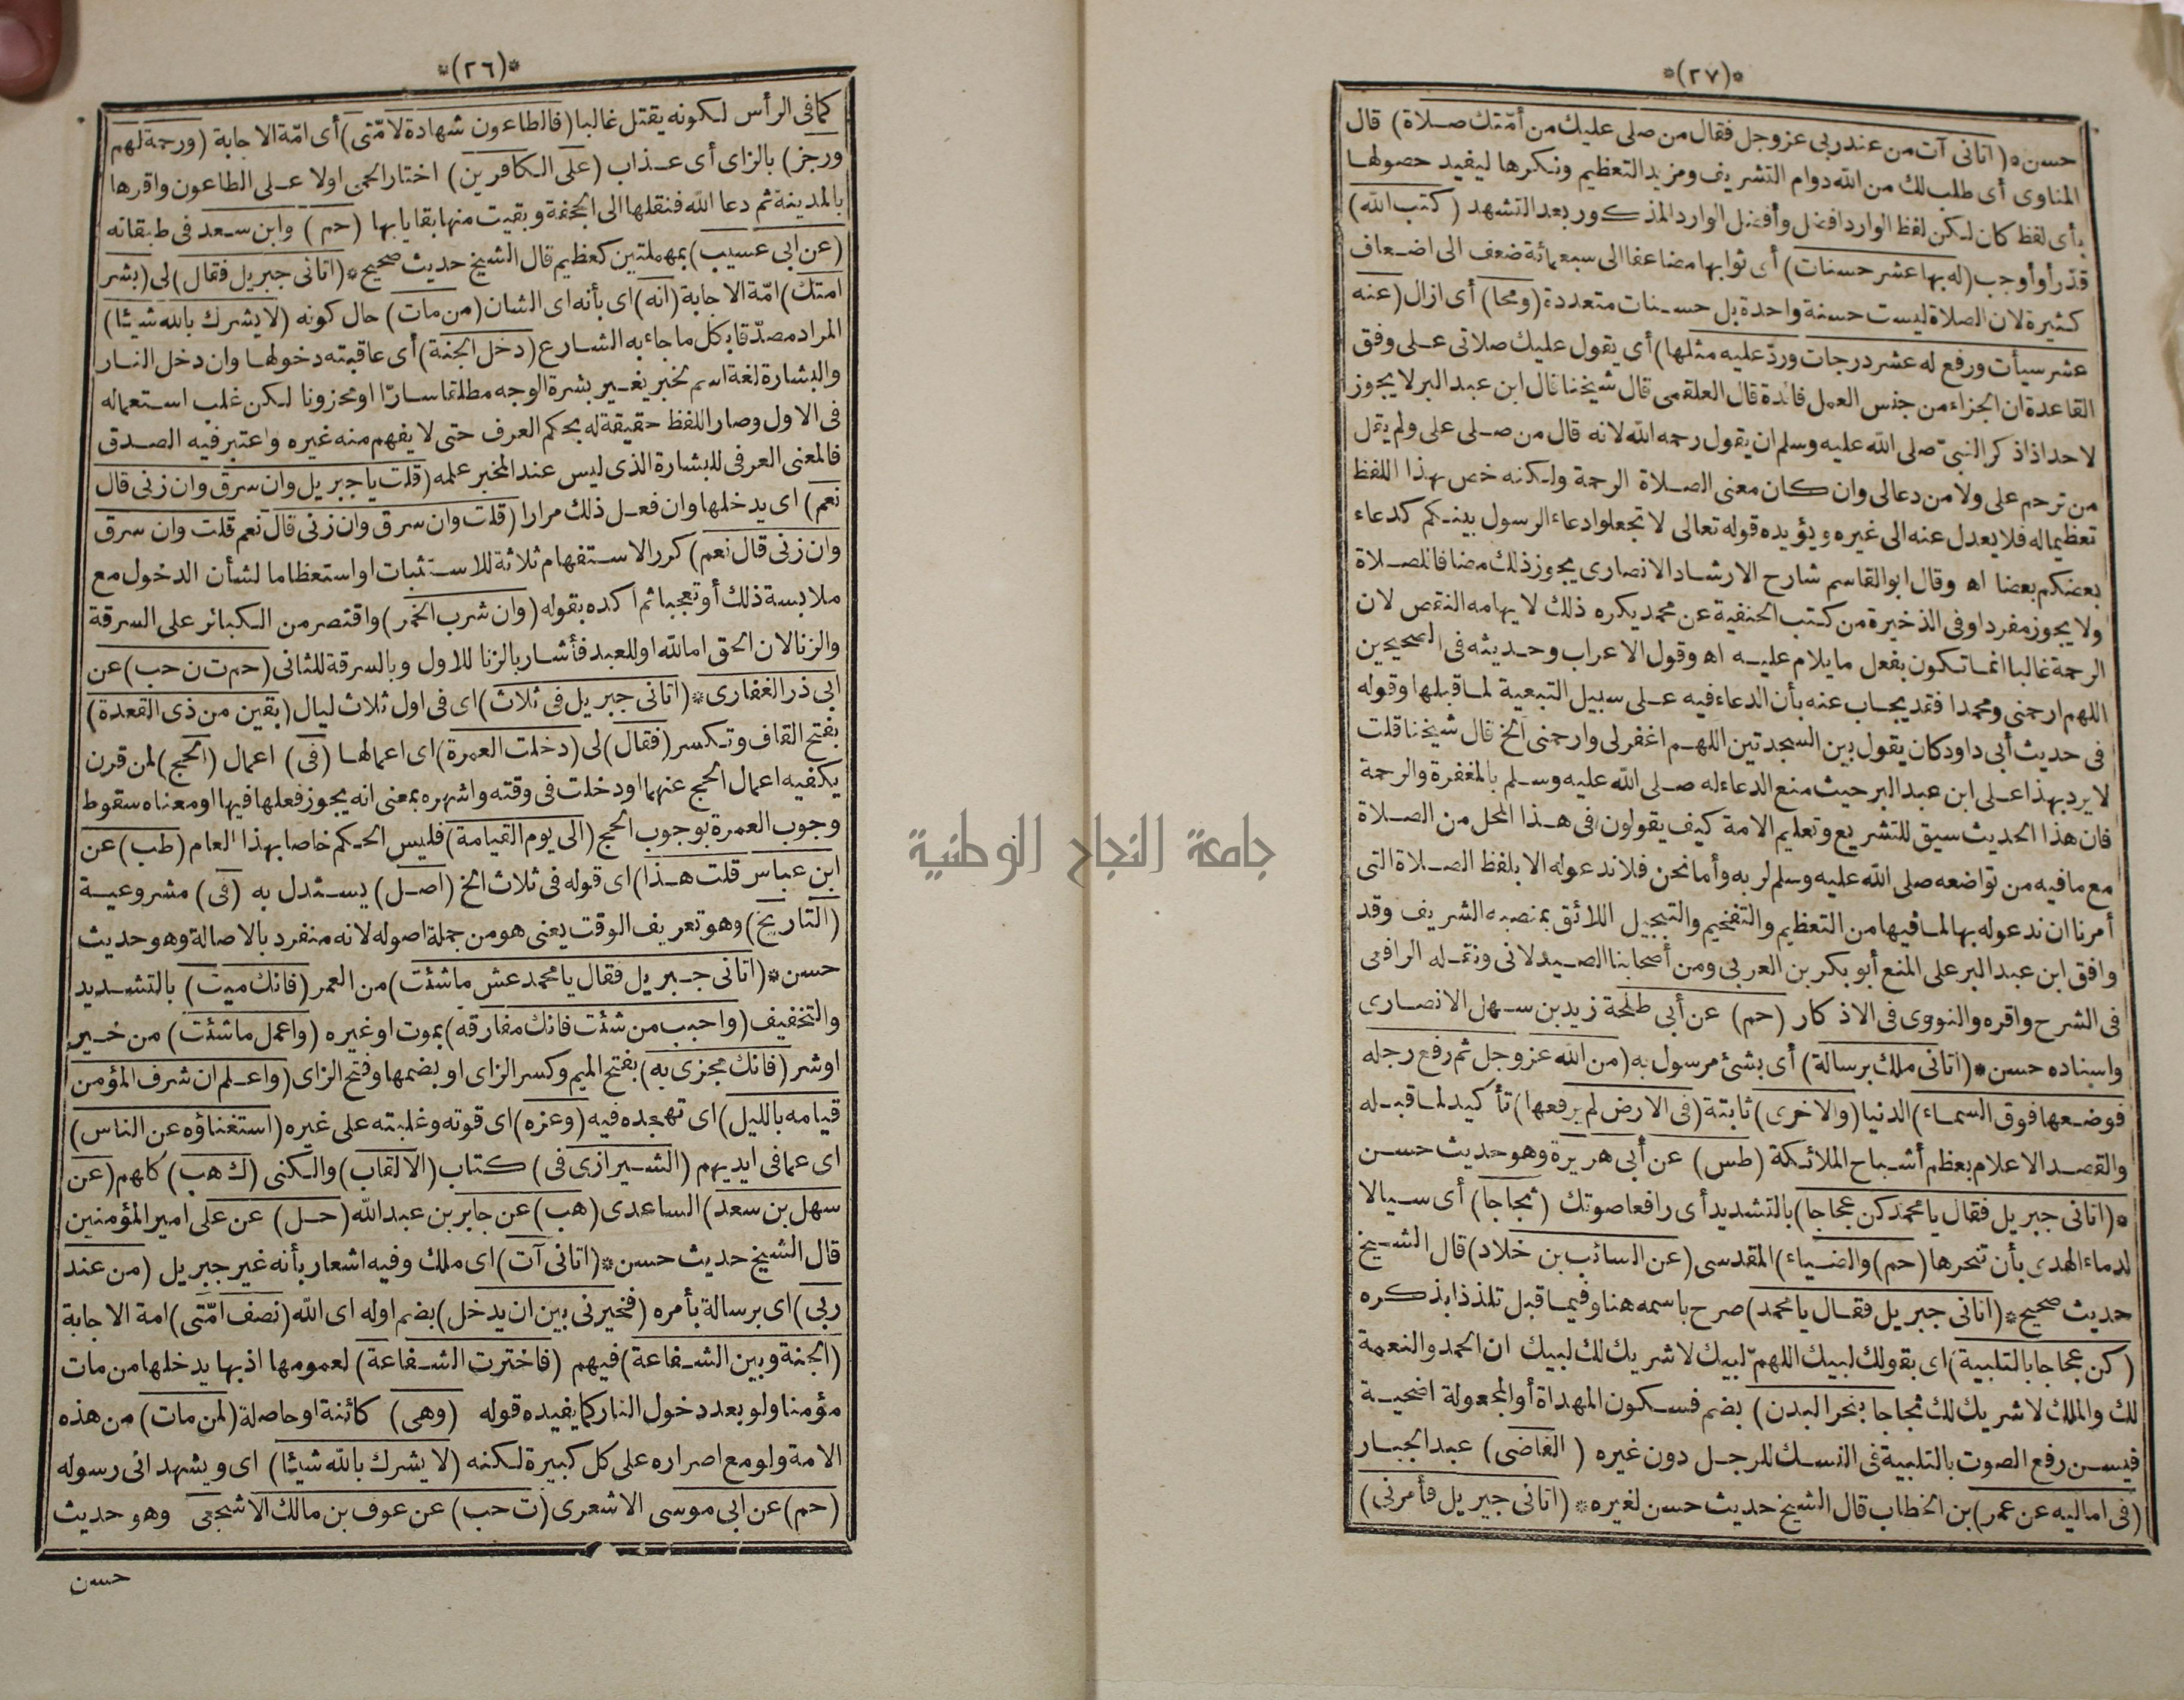 *(٢٦)*
كما فى الرأس لكونه يقتل غالبا (فالطاعون شهادة لامّتى) أى امّة الاجابة (ورحمة لهم
ورجز) بالزاى أى عذاب (على الكافرين) اختار الحمى اولا على الطاعون واقرها
بالمدينة ثم دعا الله فنقلها الى الجحفة وبقيت منها بقايا بها (حم) وابن سعد فى طبقاته
(عن ابى عسيب) بمهملتين كعظيم قال الشيخ حديث صحيح *(اتانى جبريل فقال) لى (بشر
امتك) امّة الاجابة (انه) اى بأنه اى الشان (من مات) حال كونه (لا يشرك بالله شيئا)
المراد مصدّقا بكل ما جاء به الشارع (دخل الجنة) أى عاقبته دخولها وان دخل النار
والبشارة لغة اسم لخبر يغير بشرة الوجه مطلقا سارّا او محزونا لكن غلب استعماله
فى الاول وصار اللفظ حقيقة له بحكم العرف حتى لا يفهم منه غيره واعتبر فيه الصدق
فالمعنى العرفى للبشارة الذى ليس عند المخبر علمه (قلت يا جبريل وان سرق وان زنى قال
نعم) اى يدخلها وان فعل ذلك مرارا (قلت وان سرق وان زنى قال نعم قلت وان سرق
وان زنى قال نعم) كرر الاستفهام ثلاثة للاستثبات او استعظاما لشأن الدخول مع
ملابسة ذلك أو تعجبا ثم اكده بقوله (وان شرب الخمر) واقتصر من الكبائر على السرقة
والزنا لان الحق اما لله او للعبد فأشار بالزنا للاول وبالسرقة للثانى (حم ت ن حب) عن
ابى ذر الغفارى *(اتانى جبريل فى ثلاث) اى فى اول ثلاث ليال (بقين من ذى القعدة)
بفتح القاف وتكسر (فقال) لى (دخلت العمرة) اى اعمالها (فى) اعمال (الحج) لمن قرن
يكفيه اعمال الحج عنهما او دخلت فى وقته واشهره بمعنى انه يجوز فعلها فيها او معناه سقوط
وجوب العمرة بوجوب الحج (الى يوم القيامة) فليس الحكم خاصا بهذا العام (طب) عن
ابن عباس قلت هذا) اى قوله فى ثلاث الخ (اصل) يستدل به (فى) مشروعية
(التاريخ) وهو تعريف الوقت يعنى هو من جملة اصوله لانه منفرد بالاصالة وهو حديث
حسن *(اتانى جبريل فقال يا محمد عش ما شئت) من العمر (فانك ميت) بالتشديد
والتخفيف (واحبب من شئت فانك مفارقه) بموت او غيره (واعمل ما شئت) من خير
او شر (فانك مجزى به) بفتح الميم وكسر الزاى او بضمها وفتح الزاى (واعلم ان شرف المؤمن
قيامه بالليل) اى تهجده فيه (وعزه) اى قوته وغلبته على غيره (استغناؤه عن الناس)
اى عما فى ايديهم (الشيرازى فى) كتاب (الالقاب) والكنى (ك هب) كلهم (عن
سهل بن سعد) الساعدى (هب) عن جابر بن عبد الله (حل) عن على امير المؤمنين
قال الشيخ حديث حسن *(اتانى آت) اى ملك وفيه اشعار بأنه غير جبريل (من عند
ربى) اى برسالة بأمره (فخيرنى بين ان يدخل) بضم اوله اى الله (نصف امّتى) امة الاجابة
(الجنة وبين الشفاعة) فيهم (فاخترت الشفاعة) لعمومها اذ بها يدخلها من مات
مؤمنا ولو بعد دخول النار كما يفيده قوله (وهى) كائنة او حاصلة (لمن مات) من هذه
الامة ولو مع اصراره على كل كبيرة لكنه (لا يشرك بالله شيئا) اى ويشهد انى رسوله
(حم) عن ابى موسى الاشعرى (ت حب) عن عوف بن مالك الاشجعى وهو حديث
حسن
*(٢٧)*
حسن *(اتانى آت من عند ربى عز وجل فقال من صلى عليك من أمّتك صلاة) قال
المناوى أى طلب لك من الله دوام التشريف ومزيد التعظيم ونكرها ليفيد حصولها
بأى لفظ كان لكن لفظ الوارد افضل وأفضل الوارد المذكور بعد التشهد (كتب الله)
قدّر أو أوجب (له بها عشر حسنات) أى ثوابها مضاعفا الى سبعمائة ضعف الى اضعاف
كثيرة لان الصلاة ليست حسنة واحدة بل حسنات متعددة (ومحا) أى ازال (عنه
عشر سيأت ورفع له عشر درجات وردّ عليه مثلها) أى يقول عليك صلاتى على وفق
القاعدة ان الجزاء من جنس العمل فائدة قال العلقمى قال شيخنا قال ابن عبد البر لا يجوز
لاحد اذا ذكر النبىّ صلى الله عليه وسلم ان يقول رحمه الله لانه قال من صلى على ولم يقل
من ترحم على ولا من دعا لى وان كان معنى الصلاة الرحمة ولكنه خص بهذا اللفظ
تعظيما له فلا يعدل عنه الى غيره ويؤيده قوله تعالى لا تجعلوا دعاء الرسول بينكم كدعاء
بعضكم بعضا اه وقال ابو القاسم شارح الارشاد الانصارى يجوز ذلك مضافا للصلاة
ولا يجوز مفردا وفى الذخيرة من كتب الحنفية عن محمد يكره ذلك لايهامه النقص لان
الرحمة غالبا انما تكون بفعل ما يلام عليه اه وقول الاعراب وحديثه فى الصحيحين
اللهم ارحمنى ومحمدا فقد يجاب عنه بأن الدعاء فيه على سبيل التبعية لما قبلها وقوله
فى حديث أبى داود كان يقول بين السجدتين اللهم اغفر لى وارحمنى الخ قال شيخنا قلت
لا يرد بهذا على ابن عبد البر حيث منع الدعاء له صلى الله عليه وسلم بالمغفرة والرحمة
فان هذا الحديث سيق للتشريع وتعليم الامة كيف يقولون فى هذا المحل من الصلاة
مع ما فيه من تواضعه صلى الله عليه وسلم لربه وأما نحن فلا ندعو له الا بلفظ الصلاة التى
أمرنا ان ندعو له بها لما فيها من التعظيم والتفخيم والتبجيل اللائق بمنصبه الشريف وقد
وافق ابن عبد البر على المنع أبو بكر بن العربى ومن أصحابنا الصيدلانى ونقله الرافعى
فى الشرح واقره والنووى فى الاذكار (حم) عن أبى طلحة زيد بن سهل الانصارى
واسناده حسن *(اتانى ملك برسالة) أى بشئ مرسول به (من الله عز وجل ثم رفع رجله
فوضعها فوق السماء) الدنيا (والاخرى) ثابتة (فى الارض لم يرفعها) تأكيد لما قبله
والقصد الاعلام بعظم أشباح الملائكة (طس) عن أبى هريرة وهو حديث حسن
*(اتانى جبريل فقال يا محمد كن عجاجا) بالتشديد أى رافعا صوتك (ثجاجا) أى سيالا
لدماء الهدى بأن تنحرها (حم) والضياء) المقدسى (عن السائب بن خلاد) قال الشيخ
حديث صحيح *(اتانى جبريل فقال يا محمد) صرح باسمه هنا وفيما قبل تلذذا بذكره
(كن عجاجا بالتلبية) اى بقولك لبيك اللهمّ لبيك لا شريك لك لبيك ان الحمد والنعمة
لك والملك لا شريك لك ثجاجا بنحر البدن) بضم فسكون المهداة أو المجعولة اضحية
فيسن رفع الصوت بالتلبية فى النسك للرجل دون غيره (القاضى) عبد الجبار
(فى اماليه عن عمر) بن الخطاب قال الشيخ حديث حسن لغيره *(اتانى جبريل فأمرنى)
جامعة النجاح الوطنية